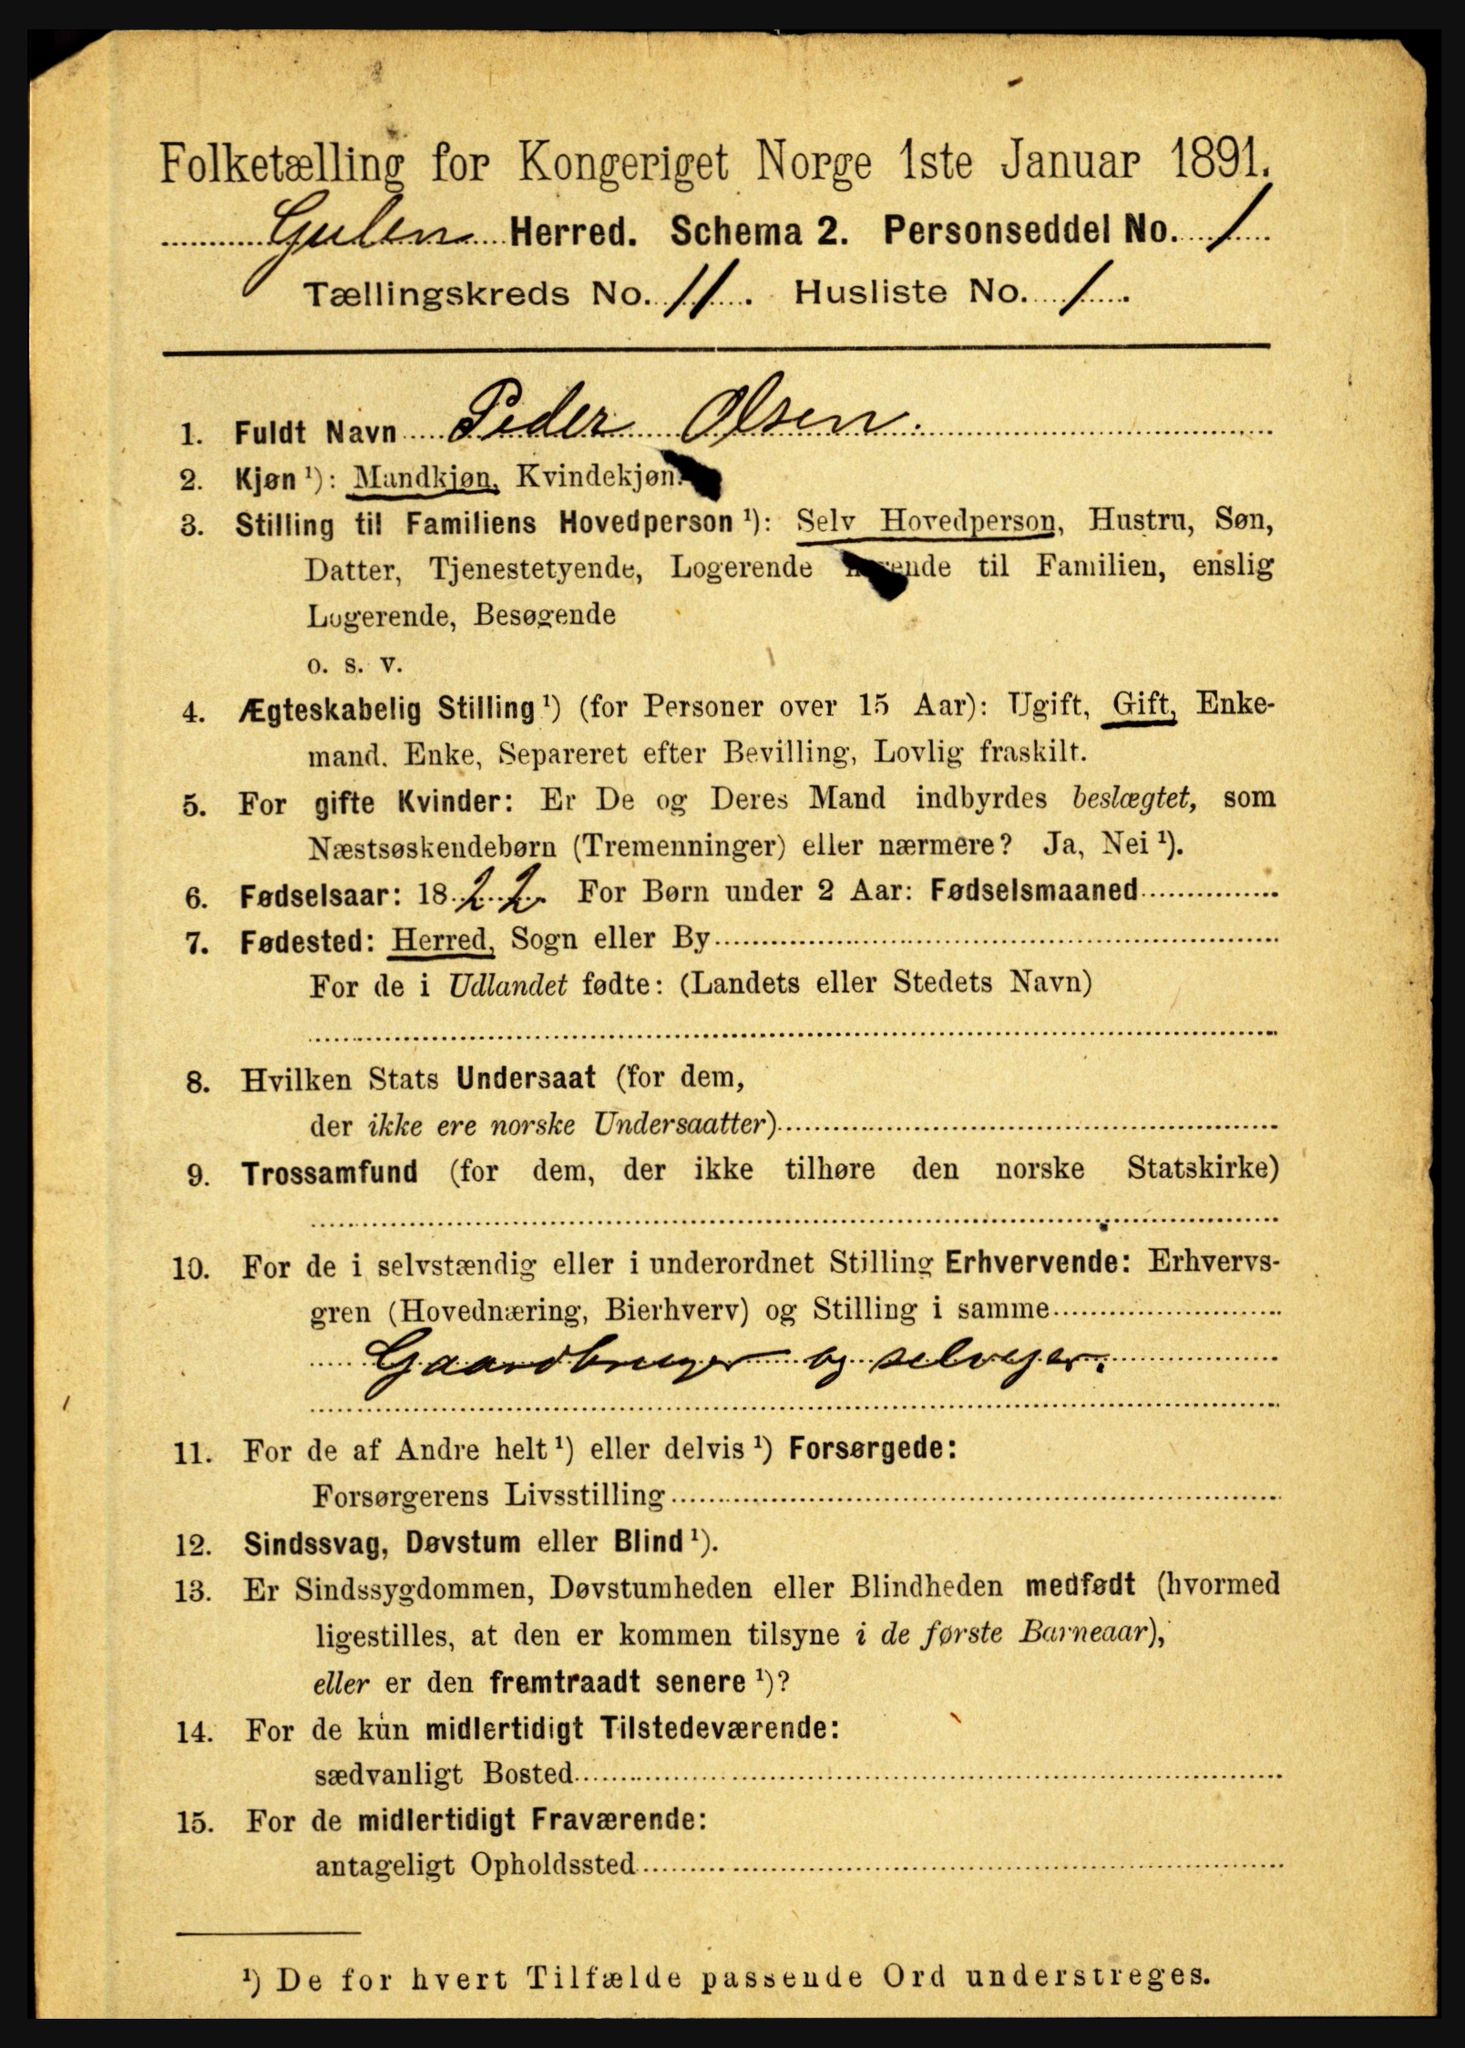 Folketælling for Kongeriget Norge 1ste Januar 1891.
Gulen Herred. Schema 2. Personseddel No. 1
Tællingskreds No. 11. Husliste No. 1.
1. Fuldt Navn Peder Olsen.
2. Kjøn ¹): Mandkjøn, Kvindekjøn.
3. Stilling til Familiens Hovedperson ¹): Selv Hovedperson, Hustru, Søn,
Datter, Tjenestetyende, Logerende til Familien, enslig
Logerende, Besøgende
o. s. v.
4. Ægteskabelig Stilling ¹) (for Personer over 15 Aar): Ugift, Gift, Enke-
mand. Enke, Separeret efter Bevilling, Lovlig fraskilt.
5. For gifte Kvinder: Er De og Deres Mand indbyrdes beslægtet, som
Næstsøskendebørn (Tremenninger) eller nærmere? Ja, Nei ¹).
6. Fødselsaar: 1822. For Børn under 2 Aar: Fødselsmaaned
7. Fødested: Herred, Sogn eller By
For de i Udlandet fødte: (Landets eller Stedets Navn)
8. Hvilken Stats Undersaat (for dem,
der ikke ere norske Undersaatter)
9. Trossamfund (for dem, der ikke tilhøre den norske Statskirke)
10. For de i selvstændig eller i underordnet Stilling Erhvervende: Erhvervs-
gren (Hovednæring, Bierhverv) og Stilling i samme
Gaardbruger og selvejer.
11. For de af Andre helt ¹) eller delvis ¹) Forsørgede:
Forsørgerens Livsstilling
12. Sindssvag, Døvstum eller Blind ¹).
13. Er Sindssygdommen, Døvstumheden eller Blindheden medfødt (hvormed
ligestilles, at den er kommen tilsyne i de første Barneaar),
eller er den fremtraadt senere ¹)?
14. For de kun midlertidigt Tilstedeværende:
sædvanligt Bosted
15. For de midlertidigt Fraværende:
antageligt Opholdssted
¹) De for hvert Tilfælde passende Ord understreges.